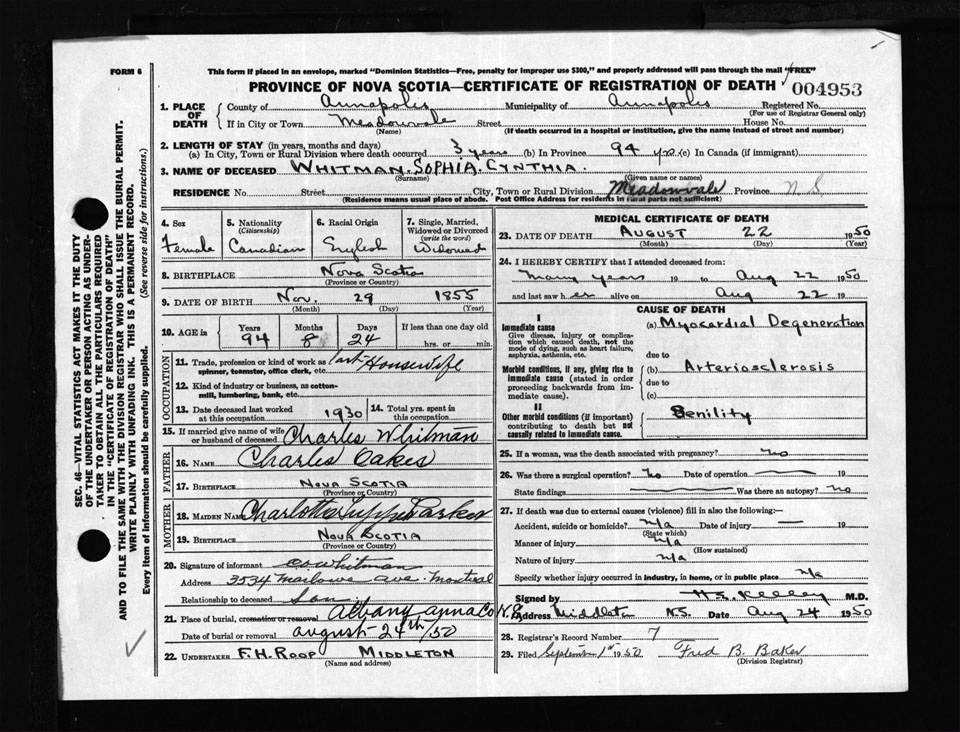 FORM 6
This form if placed in an envelope, marked "Dominion Statistics—Free, penalty for improper use $300," and properly addressed will pass through the mail "FREE"
PROVINCE OF NOVA SCOTIA—CERTIFICATE OF REGISTRATION OF DEATH
004953
1. PLACE OF DEATH
County of Annapolis Municipality of Annapolis Registered No.
(For use of Registrar General only)
If in City or Town Meadowvale Street House No.
(Name) (If death occurred in a hospital or institution, give the name instead of street and number)
2. LENGTH OF STAY (in years, months and days)
(a) In City, Town or Rural Division where death occurred 3 years (b) In Province 94 yrs (c) In Canada (if immigrant)
3. NAME OF DECEASED WHITMAN. SOPHIA. CYNTHIA.
(Surname) (Given name or names)
RESIDENCE No. Street City, Town or Rural Division Meadowvale Province N.S.
(Residence means usual place of abode. Post Office Address for residents in rural parts not sufficient)
4. Sex
Female
5. Nationality
(Citizenship)
Canadian
6. Racial Origin
English
7. Single, Married, Widowed or Divorced
(write the word)
Widowed
8. BIRTHPLACE Nova Scotia
(Province or Country)
9. DATE OF BIRTH Nov. 29 1855
(Month) (Day) (Year)
10. AGE in
Years Months Days If less than one day old
94 8 24 hrs. or min.
OCCUPATION
11. Trade, profession or kind of work as spinner, teamster, office clerk, etc. Housewife
12. Kind of industry or business, as cotton-mill, lumbering, bank, etc.
13. Date deceased last worked at this occupation 1930
14. Total yrs. spent in this occupation
15. If married give name of wife or husband of deceased Charles Whitman
FATHER
16. NAME Charles Oakes
17. BIRTHPLACE NOVA SCOTIA
(Province or Country)
MOTHER
18. MAIDEN NAME Charlotte Parker
19. BIRTHPLACE NOVA SCOTIA
(Province or Country)
20. Signature of informant Whitman
Address 3534 Marlowe Ave. Montreal
Relationship to deceased Son
21. Place of burial, cremation or removal Albany Anna Co N.S.
Date of burial or removal August 24th/50
22. UNDERTAKER F.H. ROOP MIDDLETON
(Name and address)
MEDICAL CERTIFICATE OF DEATH
23. DATE OF DEATH AUGUST 22 1950
(Month) (Day) (Year)
24. I HEREBY CERTIFY that I attended deceased from:
many years 19 to Aug 22 1950
and last saw her alive on Aug 22 19
CAUSE OF DEATH
I
Immediate cause
Give disease, injury or complication which caused death, not the mode of dying, such as heart failure, asphyxia, asthenia, etc.
(a) Myocardial Degeneration
due to
Morbid conditions, if any, giving rise to immediate cause (stated in order proceeding backwards from immediate cause).
(b) Arteriosclerosis
due to
(c)
II
Other morbid conditions (if important) contributing to death but not causally related to immediate cause.
Senility
25. If a woman, was the death associated with pregnancy? no
26. Was there a surgical operation? No Date of operation 19
State findings Was there an autopsy? no
27. If death was due to external causes (violence) fill in also the following:—
Accident, suicide or homicide? n/a Date of injury — 19
(State which)
Manner of injury n/a
(How sustained)
Nature of injury n/a
Specify whether injury occurred in industry, in home, or in public place n/a
Signed by H.S. Kelley M.D.
Address Middleton N.S. Date Aug 24 1950
28. Registrar's Record Number 7
29. Filed September 1st 1950 Fred B. Baker
(Division Registrar)
SEC. 46—VITAL STATISTICS ACT MAKES IT THE DUTY
OF THE UNDERTAKER OR PERSON ACTING AS UNDER-
TAKER TO OBTAIN ALL THE PARTICULARS REQUIRED
IN THE "CERTIFICATE OF REGISTRATION OF DEATH"
AND TO FILE THE SAME WITH THE DIVISION REGISTRAR WHO SHALL ISSUE THE BURIAL PERMIT.
WRITE PLAINLY WITH UNFADING INK. THIS IS A PERMANENT RECORD.
Every item of information should be carefully supplied. (See reverse side for instructions.)